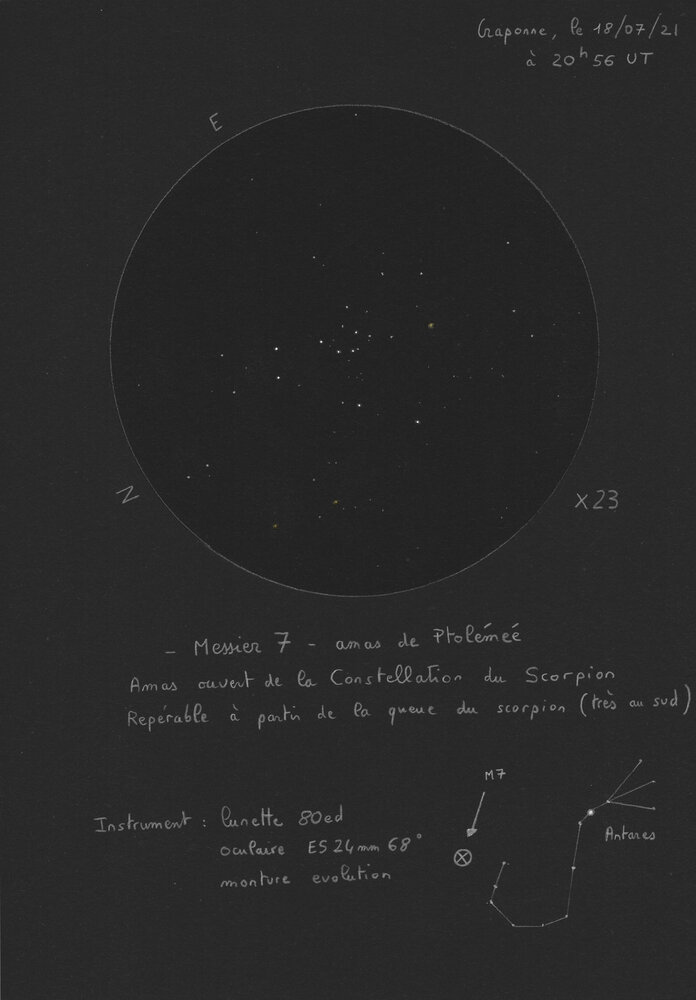 Craponne, le 18/07/21
à 20h56 UT
E
N
X23
- Messier 7 - amas de Ptoléméé
Amas ouvert de la Constellation du Scorpion
Repérable à partir de la queue du scorpion (très au sud)
M7
Antares
Instrument : lunette 80ed
oculaire ES 24mm 68°
monture evolution